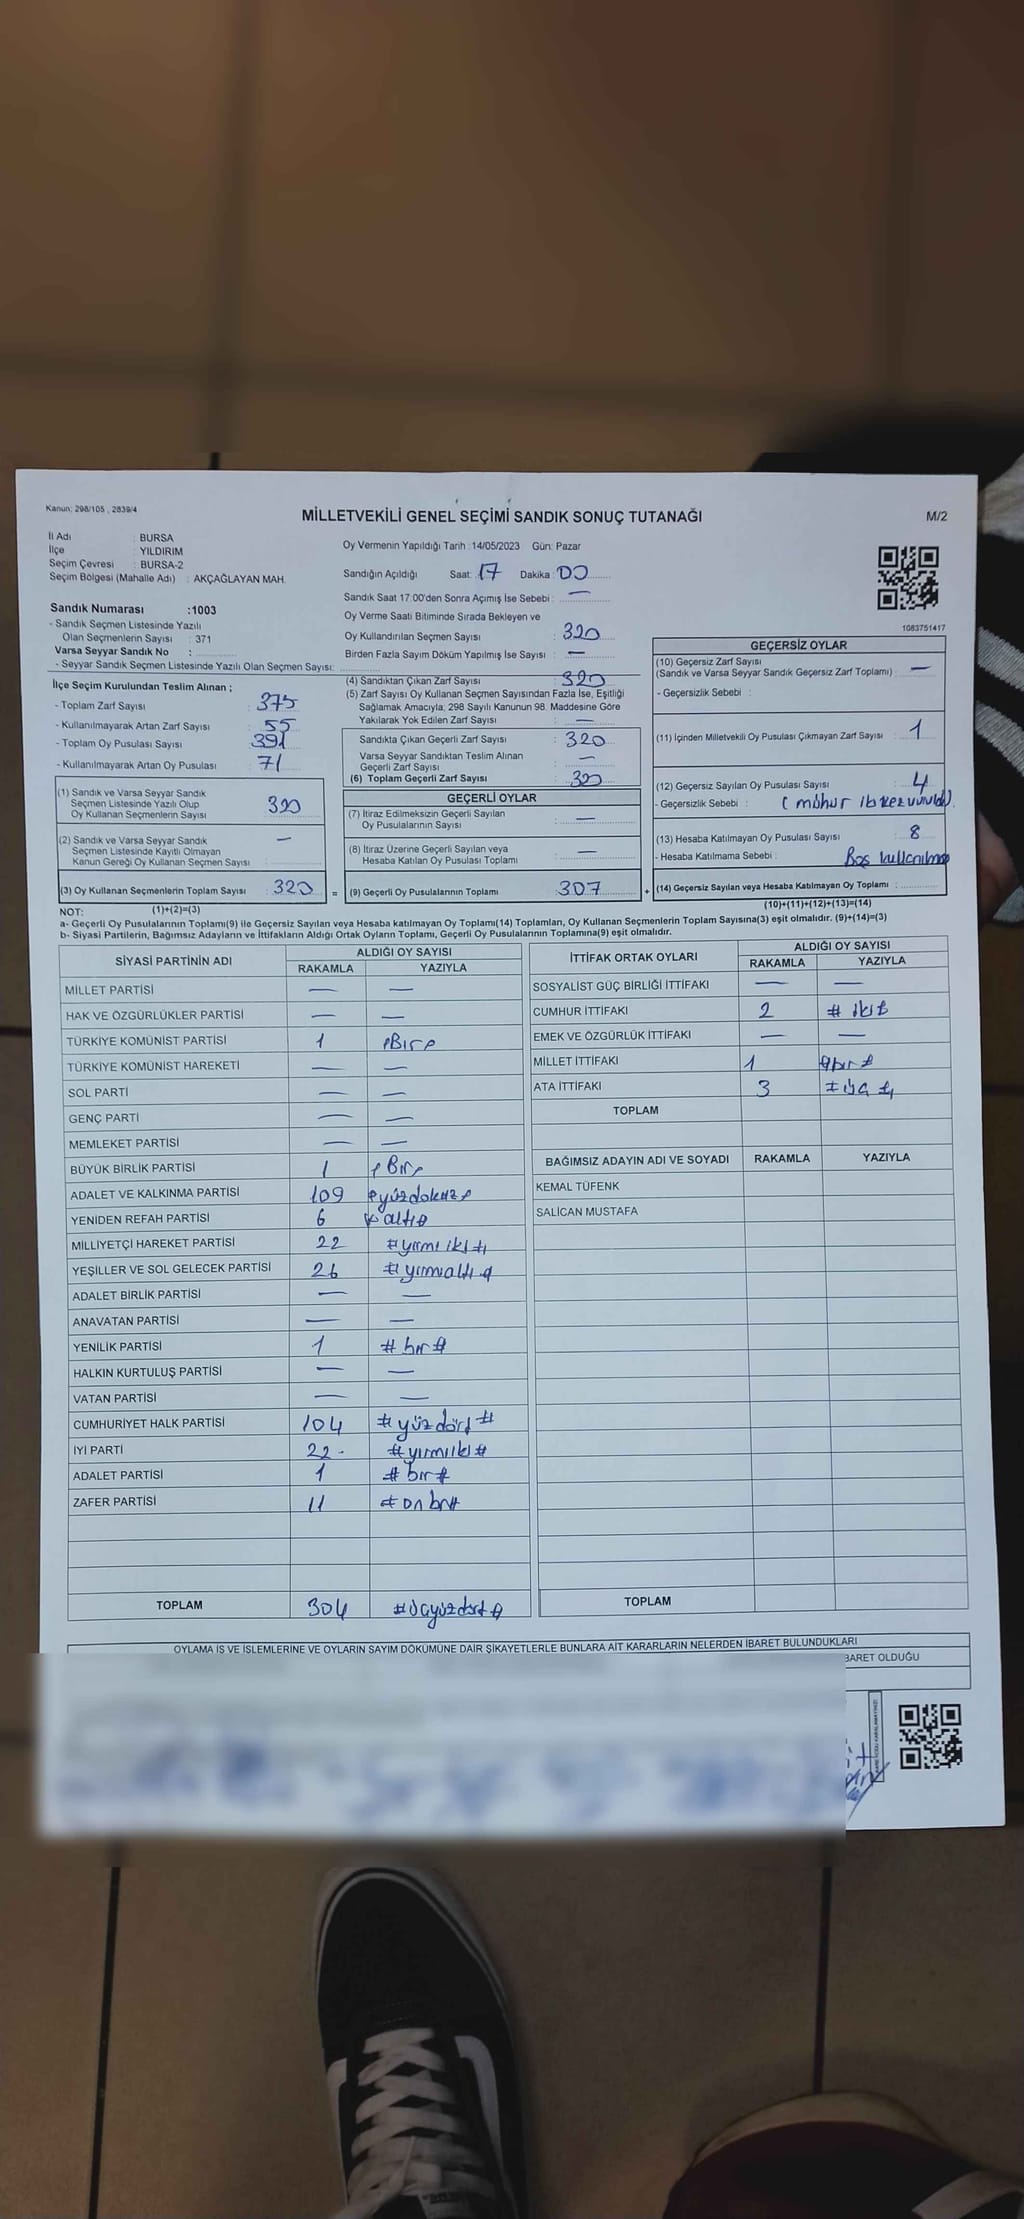 Kanun: 298/105 , 2839/4
MİLLETVEKİLİ GENEL SEÇİMİ SANDIK SONUÇ TUTANAĞI
M/2
İl Adı : BURSA
İlçe : YILDIRIM
Seçim Çevresi : BURSA-2
Seçim Bölgesi (Mahalle Adı) : AKÇAĞLAYAN MAH.
Sandık Numarası :1003
- Sandık Seçmen Listesinde Yazılı
Olan Seçmenlerin Sayısı : 371
Varsa Seyyar Sandık No :
- Seyyar Sandık Seçmen Listesinde Yazılı Olan Seçmen Sayısı:
Oy Vermenin Yapıldığı Tarih :14/05/2023 Gün: Pazar
Sandığın Açıldığı Saat: 17 Dakika : 00
Sandık Saat 17:00'den Sonra Açımış İse Sebebi : —
Oy Verme Saati Bitiminde Sırada Bekleyen ve
Oy Kullandırılan Seçmen Sayısı : 320
Birden Fazla Sayım Döküm Yapılmış İse Sayısı : —
1083751417
İlçe Seçim Kurulundan Teslim Alınan ;
- Toplam Zarf Sayısı : 375
- Kullanılmayarak Artan Zarf Sayısı : 55
- Toplam Oy Pusulası Sayısı : 391
- Kullanılmayarak Artan Oy Pusulası : 71
(1) Sandık ve Varsa Seyyar Sandık
Seçmen Listesinde Yazılı Olup
Oy Kullanan Seçmenlerin Sayısı : 320
(2) Sandık ve Varsa Seyyar Sandık
Seçmen Listesinde Kayıtlı Olmayan
Kanun Gereği Oy Kullanan Seçmen Sayısı : —
(3) Oy Kullanan Seçmenlerin Toplam Sayısı : 320
(1)+(2)=(3)
(4) Sandıktan Çıkan Zarf Sayısı : 320
(5) Zarf Sayısı Oy Kullanan Seçmen Sayısından Fazla İse, Eşitliği
Sağlamak Amacıyla, 298 Sayılı Kanunun 98. Maddesine Göre
Yakılarak Yok Edilen Zarf Sayısı : —
Sandıkta Çıkan Geçerli Zarf Sayısı : 320
Varsa Seyyar Sandıktan Teslim Alınan
Geçerli Zarf Sayısı : —
(6) Toplam Geçerli Zarf Sayısı : 320
GEÇERLİ OYLAR
(7) İtiraz Edilmeksizin Geçerli Sayılan
Oy Pusulalarının Sayısı : —
(8) İtiraz Üzerine Geçerli Sayılan veya
Hesaba Katılan Oy Pusulası Toplamı : —
= (9) Geçerli Oy Pusulalarının Toplamı : 307 +
GEÇERSİZ OYLAR
(10) Geçersiz Zarf Sayısı
(Sandık ve Varsa Seyyar Sandık Geçersiz Zarf Toplamı) : —
- Geçersizlik Sebebi :
(11) İçinden Milletvekili Oy Pusulası Çıkmayan Zarf Sayısı : 1
(12) Geçersiz Sayılan Oy Pusulası Sayısı : 4
- Geçersizlik Sebebi :
(13) Hesaba Katılmayan Oy Pusulası Sayısı : 8
- Hesaba Katılmama Sebebi : Boş kullanılmış
(14) Geçersiz Sayılan veya Hesaba Katılmayan Oy Toplamı :
(10)+(11)+(12)+(13)=(14)
NOT:
a- Geçerli Oy Pusulalarının Toplamı(9) ile Geçersiz Sayılan veya Hesaba katılmayan Oy Toplamı(14) Toplamları, Oy Kullanan Seçmenlerin Toplam Sayısına(3) eşit olmalıdır. (9)+(14)=(3)
b- Siyasi Partilerin, Bağımsız Adayların ve İttifakların Aldığı Ortak Oyların Toplamı, Geçerli Oy Pusulalarının Toplamına(9) eşit olmalıdır.
SİYASİ PARTİNİN ADI ALDIĞI OY SAYISI
RAKAMLA YAZIYLA
MİLLET PARTİSİ — —
HAK VE ÖZGÜRLÜKLER PARTİSİ — —
TÜRKİYE KOMÜNİST PARTİSİ 1 Bir
TÜRKİYE KOMÜNİST HAREKETİ — —
SOL PARTİ — —
GENÇ PARTİ — —
MEMLEKET PARTİSİ — —
BÜYÜK BİRLİK PARTİSİ 1 Bir
ADALET VE KALKINMA PARTİSİ 109 yüzdokuz
YENİDEN REFAH PARTİSİ 6 altı
MİLLİYETÇİ HAREKET PARTİSİ 22 #yirmi iki#
YEŞİLLER VE SOL GELECEK PARTİSİ 26 #yirmialtı#
ADALET BİRLİK PARTİSİ — —
ANAVATAN PARTİSİ — —
YENİLİK PARTİSİ 1 #bir#
HALKIN KURTULUŞ PARTİSİ — —
VATAN PARTİSİ — —
CUMHURİYET HALK PARTİSİ 104 #yüzdört#
İYİ PARTİ 22 - #yirmiiki#
ADALET PARTİSİ 1 #bir#
ZAFER PARTİSİ 11 #onbir#
TOPLAM 304 #üçyüzdört#
İTTİFAK ORTAK OYLARI ALDIĞI OY SAYISI
RAKAMLA YAZIYLA
SOSYALİST GÜÇ BİRLİĞİ İTTİFAKI — —
CUMHUR İTTİFAKI 2 #iki#
EMEK VE ÖZGÜRLÜK İTTİFAKI — —
MİLLET İTTİFAKI 1 #bir#
ATA İTTİFAKI 3 #üç#
TOPLAM
BAĞIMSIZ ADAYIN ADI VE SOYADI RAKAMLA YAZIYLA
KEMAL TÜFENK
SALİCAN MUSTAFA
TOPLAM
OYLAMA İŞ VE İŞLEMLERİNE VE OYLARIN SAYIM DÖKÜMÜNE DAİR ŞİKAYETLERLE BUNLARA AİT KARARLARIN NELERDEN İBARET BULUNDUKLARI
BARET OLDUĞU